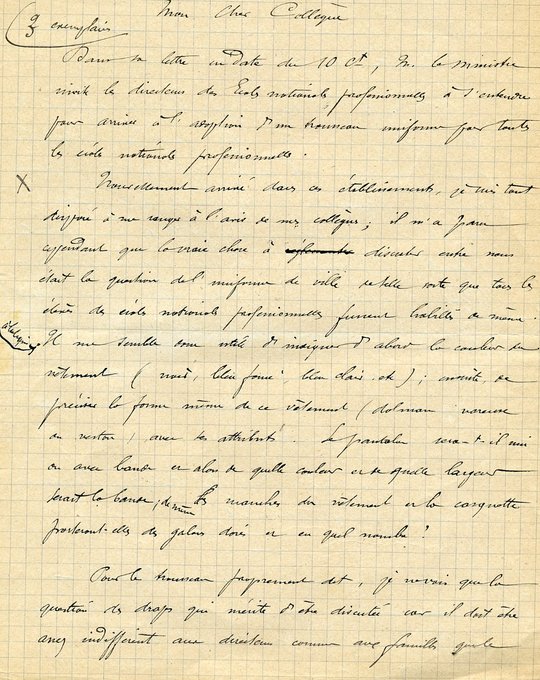 2 exemplaires
Mon Cher Collègue
Dans sa lettre en date du 10 Ct, M. le ministre
invite les directeurs des Ecoles nationales professionnelles à s'entendre
pour arriver à l'adoption d'un trousseau uniforme pour toutes
les écoles nationales professionnelles.
X
Nouvellement arrivé dans ces établissements, je suis tout
disposé à me ranger à l'avis de mes collègues ; il m'a paru
cependant que la vraie chose à discuter entre nous
était la question de l'uniforme de ville de telle sorte que tous les
élèves des écoles nationales professionnelles fussent habillés de même.
Il me semble donc utile d'indiquer d'abord la couleur du
vêtement (noir, bleu foncé, bleu clair, etc) ; ensuite, de
préciser la forme même de ce vêtement (dolman vareuse
ou veston) avec ses attributs. Le pantalon sera-t-il uni
ou avec bande et alors de quelle couleur et de quelle largeur
serait la bande ; de même les manches du vêtement et la casquette
porteront-elles des galons dorés et en quel nombre ?
Pour le trousseau proprement dit, je ne vois que la
question des draps qui mérite d'être discutée car il doit être
assez indifférent aux directeurs comme aux familles que le